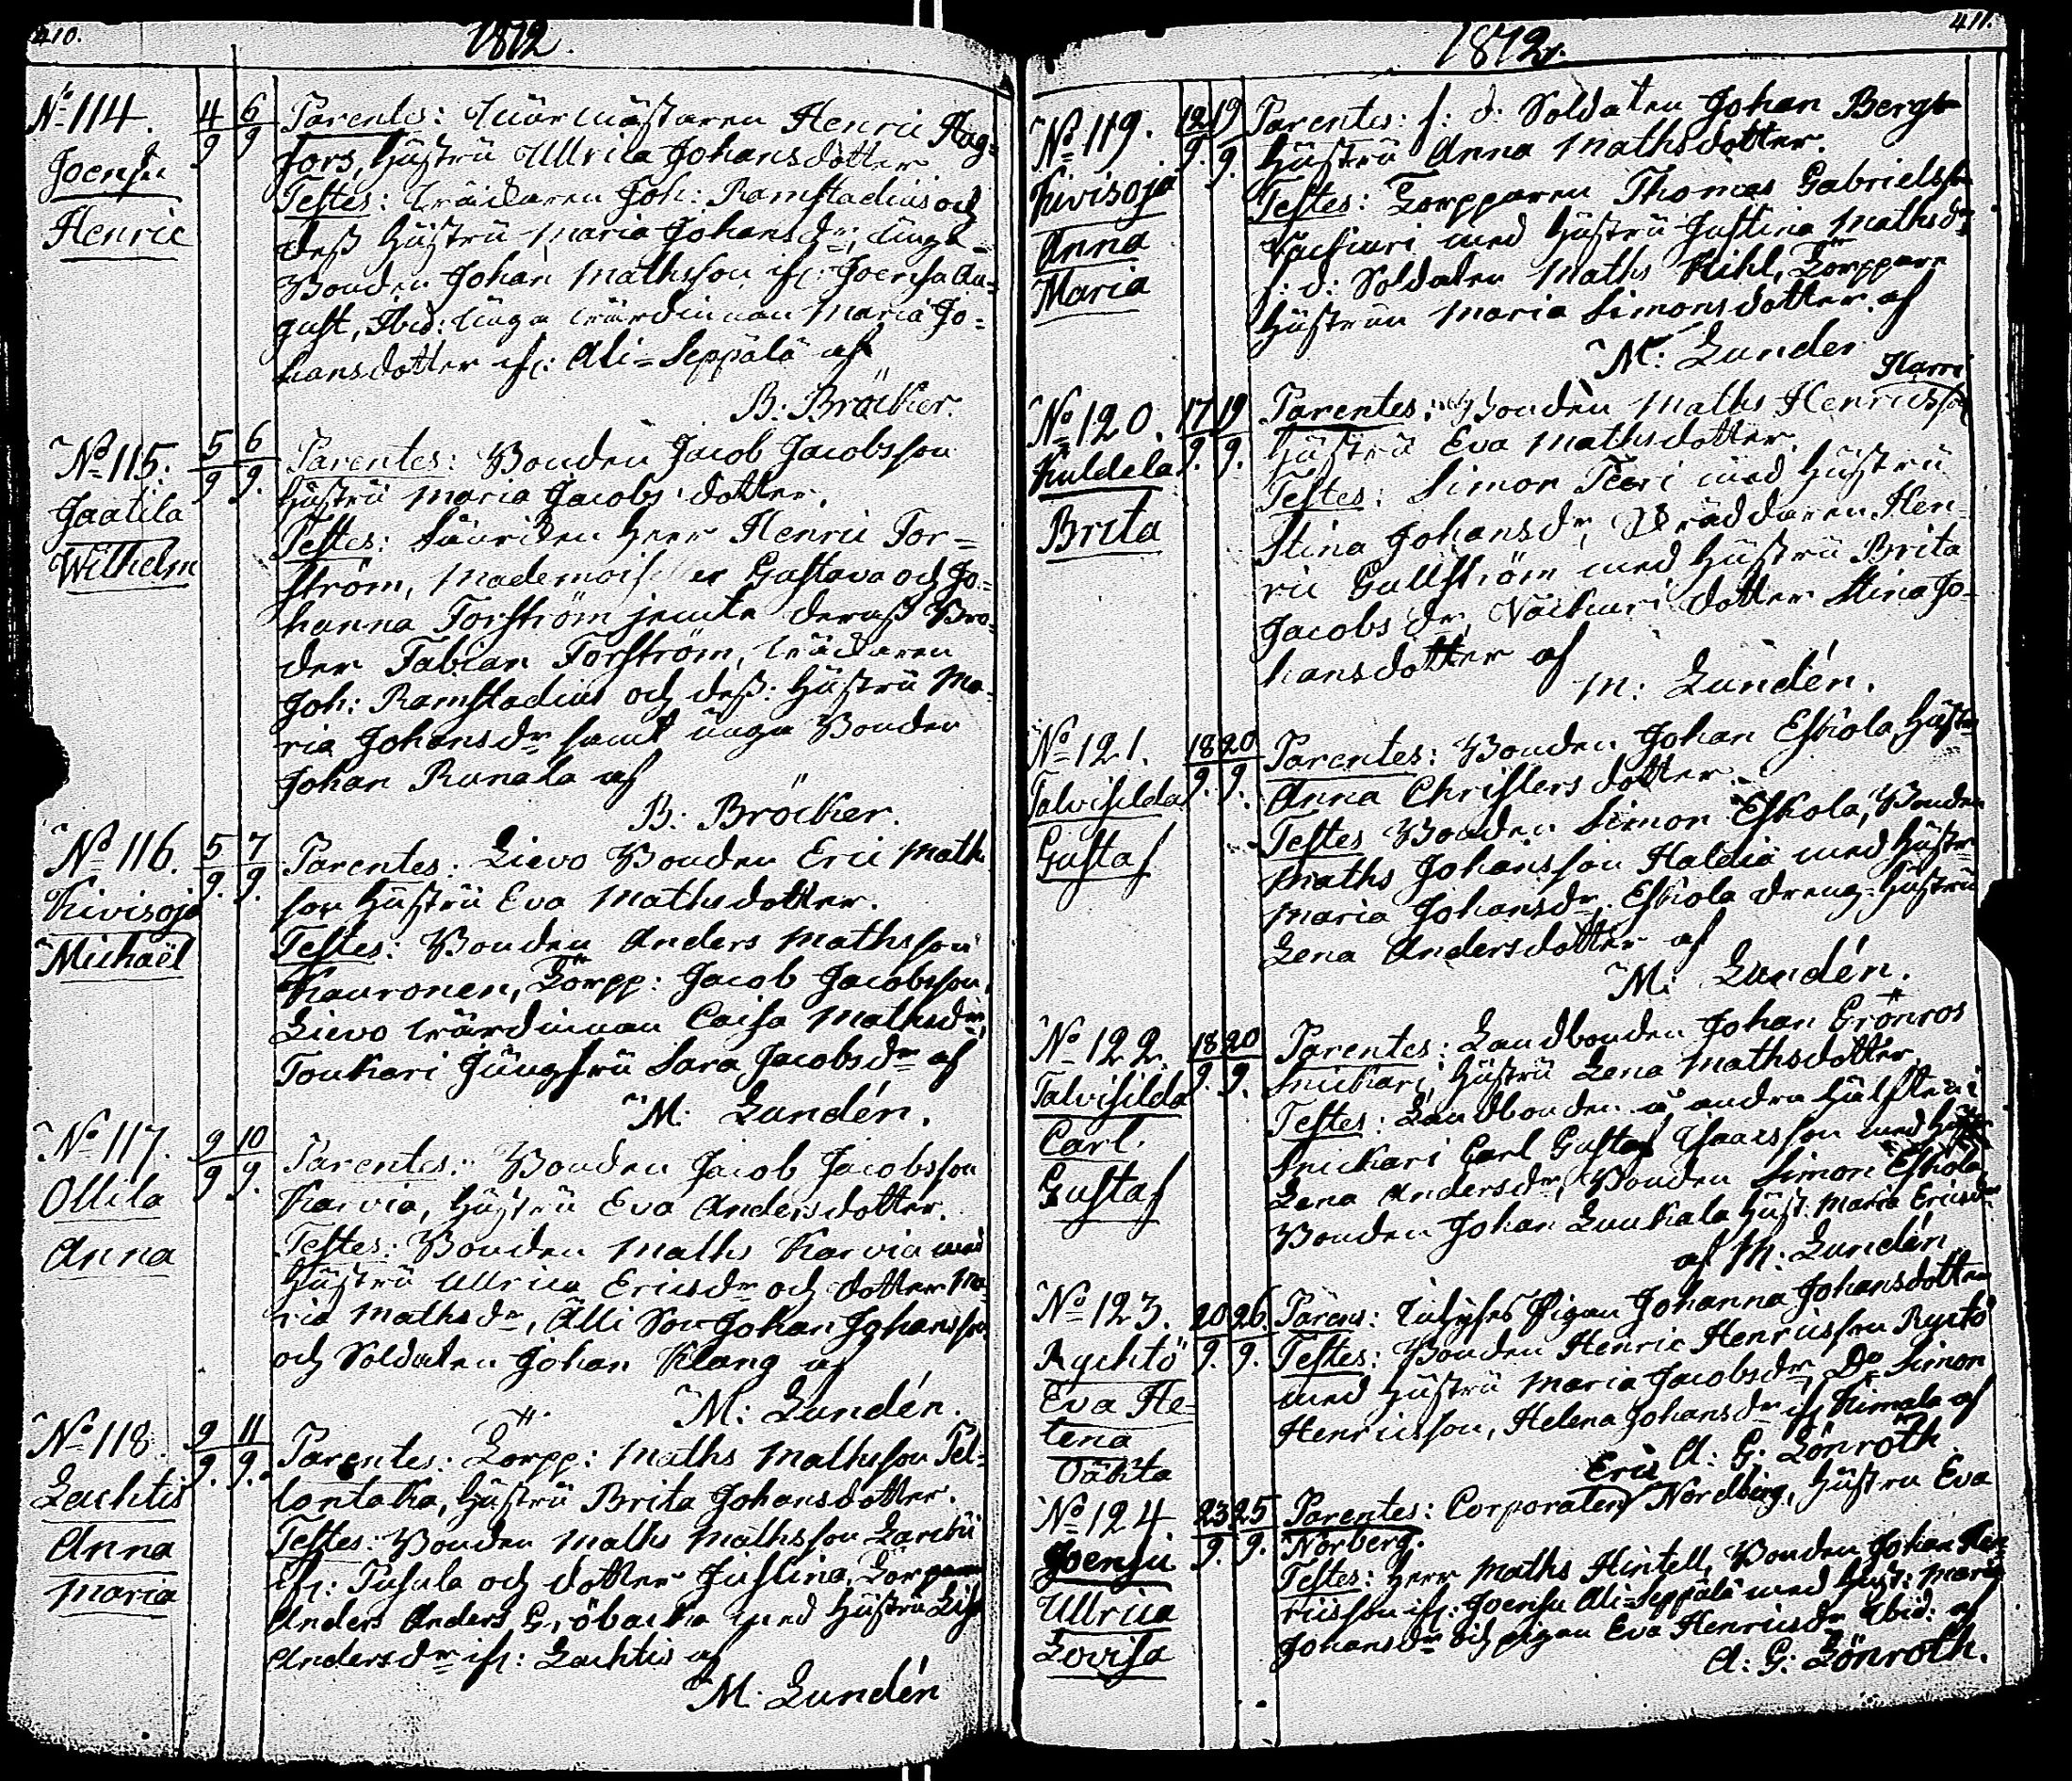 410.
1812.
No 114.
4/9 6/9
Joensu
Henric
Parentes: Qvarnmästaren Henric Hag=
fors, Hustru Ullrica Johansdotter
Testes: Joh: Ramstadius och
dess Hustru Maria Johansdr, unga
Bonden Johan Mathsson ifr: Joensu Au=
gust, Ibid: unga Värdinnan Maria Jo=
hansdotter ifr: Ali=Seppälä af
B: Bröcker.
No 115.
5/9 6/9.
Jaatila
Wilhelm
Parentes: Bonden Jacob Jacobsson
Hustru Maria Jacobs dotter.
Testes: Herr Henric For=
ström, Mademoiseller Gustava och Jo=
hanna Forström jemte deras Bro=
der Fabian Forström,
Joh: Ramstadius och dess: Hustru Ma=
ria Johansdr samt unga Bonden
Johan Runala af
B: Bröcker.
No 116.
5/9. 7/9.
Kivisoja
Michaël
Parentes: Lievo Bonden Eric Maths
son Hustru Eva Mathsdotter.
Testes: Bonden Anders Mathsson
Kauronen, Torpp: Jacob Jacobsson,
Lievo Värdinnan Caisa Mathsdr,
Toukari Jungfru Sara Jacobsdr af
M: Lundén.
No 117.
9/9 10/9.
Ollila
Anna
Parentes: Bonden Jacob Jacobsson
Karvia, Hustru Eva Andersdotter.
Testes: Bonden Maths Karvia med
Hustru Ullrica Ericsdr och dotter Ma=
ria Mathsdr, Älli Son Johan Johansson
och Soldaten Johan Klang af
M: Lundén.
No 118.
9/9. 11/9.
Lachtis
Anna
Maria
Parentes: Torpp: Maths Mathsson Pel=
lontaka, Hustru Brita Johansdotter.
Testes: Bonden Maths Mathsson
ifr: Pusula och dotter Justina, Torparn
Anders Anders med Hustru Lisa
Andersdr ifr: Lachtis af
M. Lundén
411.
1812.
No 119.
12/9. 19/9.
Kivisoja
Anna
Maria
Parentes: f: d: Soldaten Johan Berg
Hustru Anna Mathsdotter.
Testes: Torpparen Thomas Gabrielsson
Väckäri med Hustru Justina Mathsdr,
f: d: Soldaten Maths Kihl, Torppare
Hustrun Maria Simonsdotter af
M: Lunden
No 120.
17/9. 19/9.
Kuldela
Brita
Harri
Parentes: Bonden Maths Henricsson
Hustru Eva Mathsdotter
Testes: Simon Teeri med Hustru
Stina Johansdr, Skräddaren Hen=
ric Gullström med Hustru Brita
Jacobs dr, Väckäri dotter Stina Jo=
hansdotter af
M: Lundén.
No 121.
18/9. 20/9.
Talvisilda
Gustaf
Parentes: Bonden Johan Eskola, Hustru
Anna Christersdotter.
Testes Bonden Simon Eskola, Bonden
Maths Johansson Haldia med Hustru
Maria Johansdr, Eskola dreng=Hustru
Lena Andersdotter af
M: Lundén.
No 122.
18/9. 20/9.
Talvisilda
Carl.
Gustaf
Parentes: Landbonden Johan Grönros
Snickari, Hustru Lena Mathsdotter.
Testes: Landbonden å andra hälften i
Snickari Carl Gustaf Isaacsson med Hustru
Lena Andersdr, Bonden Simon Eskola
Bonden Johan Luukala Hust: Maria Ericsdr
af M: Lundén
No 123.
20/9. 26/9.
Rychtö
Eva He=
lena
Oäkta
Parens: Inhyses Pigan Johanna Johansdotter
Testes: Bonden Henric Henricsson Rychtö
med Hustru Maria Jacobsdr, Do Simon
Henricsson, Helena Johansdr ifr Kirmala af
A: G: Lönroth.
No 124.
23/9. 25/9.
Joensu
Ullrica
Lovisa
Eric
Parentes: Corporalen Nordberg, Hustru Eva
Norberg.
Testes: Herr Maths Hintell, Bonden Johan Hen=
ricsson ifr: Joensu Ali=Seppälä med Hust: Maria
Johansdr och pigan Eva Henricsdr Ibid: af
A: G: Lönroth.